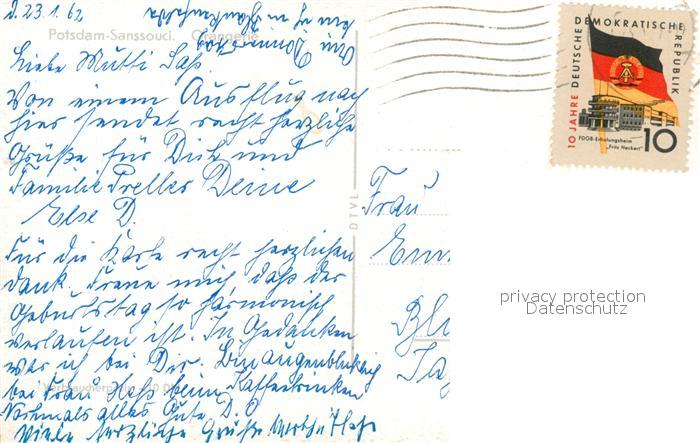 d. 23.1.62
Potsdam-Sanssouci. Orangerie
Liebe Mutti
Von einem Ausflug nach
hier sendet recht herzliche
Grüße für Dich und
Familie Preller Deine
Else D.
Für die Karte recht herzlichen
dank. Freue mich daß der
Geburtstag so harmonisch
verlaufen ist. In Gedanken
war ich bei Dir. Bin augenblicklich
bei Frau Heß beim Kaffeetrinken
Nochmals alles Gute. D. O
Viele herzliche Grüße
DTVL
Frau
10 JAHRE DEUTSCHE DEMOKRATISCHE REPUBLIK
FDGB-Erholungsheim
"Fritz Heckert"
10
privacy protection
Datenschutz